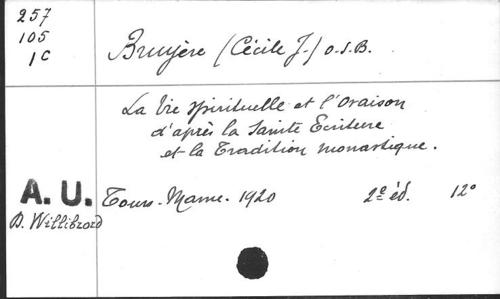 257
105
1C
Bruyère (Cécile J.) O.S.B.
La Vie spirituelle et l'Oraison
d'après la Sainte Ecriture
et la Tradition monastique.
A. U.
D. Willibrord
Tours - Mame. 1920 2e éd. 12°